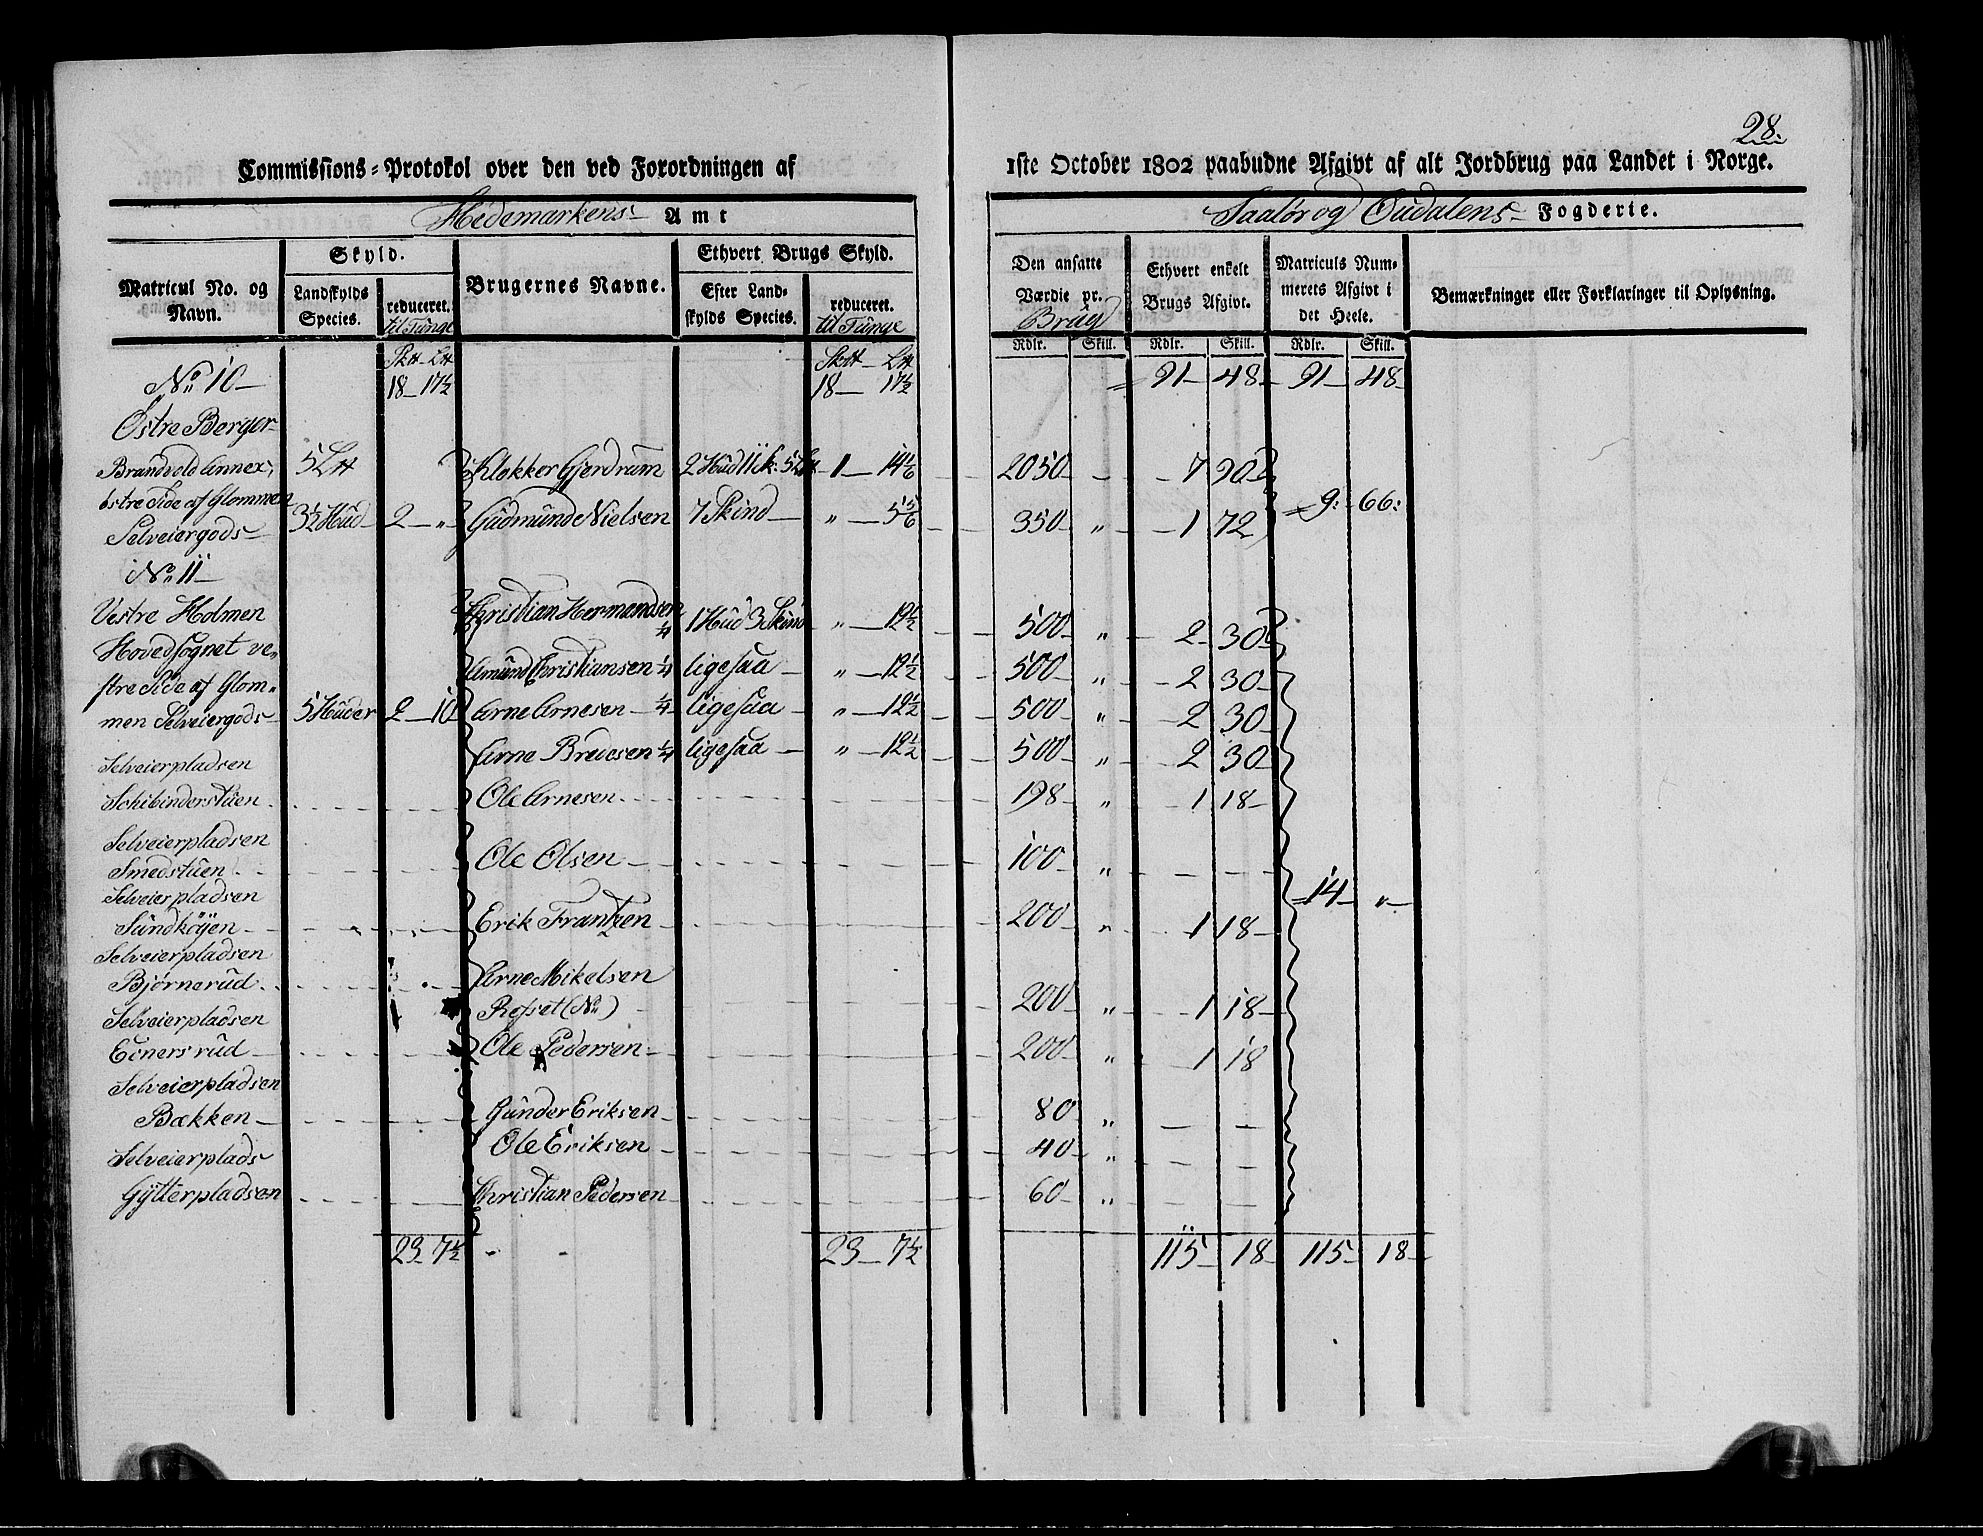 28.
Commissions-Protokol over den ved Forordningen af 1ste October 1802 paabudne Afgivt af alt Jordbrug paa Landet i Norge.
Hedemarkens Amt
Saalör og Oudalens Fogderie.
Matricul No. og Navn.
Skyld.
Landskylds Species.
reduceret. til Tunge
Brugernes Navne.
Ethvert Brugs Skyld.
Efter Landskylds Species.
reduceret. til Tunge
Den ansatte Værdie pr. Brug
Ethvert enkelt Brugs Afgivt.
Matriculs Nummerets Afgivt i det Heele.
Bemærkninger eller Forklaringer til Oplysning.
Rdlr. Skill. Rdlr. Skill. Rdlr. Skill.
18 17½ 18 17½ 91 48 91 48
No 10
Østre Berger
Brandvold Annex, 5 L℔ Klokker Gjerdrum 2 Hud 11 sk: 5 L℔ 1 14 1/6 2050 7 90
östre Side af Glommen
Selveiergods 3½ Hud 2 „ Gudmund Nielsen 7 Skind „ 5 5/6 350 „ 1 72 9: 66:
No 11
Vestre Holmen Christian Hermandsen ¼ 1 Hud 3 Skind „ 12½ 500 „ 2 30
Hovedsognet ve-
stre Side af Glom- Amund Christiansen ¼ ligesaa „ 12½ 500 „ 2 30
men Selveiergods 5 Huder 2 10 Arne Arnesen ¼ ligesaa „ 12½ 500 „ 2 30
Arne Bredesen ¼ ligesaa „ 12½ 500 „ 2 30
Selveierpladsen
Schibinderstuen Ole Arnesen 198 „ 1 18
Selveierpladsen
Smedstuen Ole Olsen 100 „
Selveierpladsen 14 „
Sundköyen Erik Frantzen 200 „ 1 18
Selveierpladsen
Björnerud Arne Mikelsen
Selveierpladsen Refset (No) 200 „ 1 18
Ole Pedersen 200 „ 1 18
Selveierpladsen
Bækken Gunder Eriksen 80 „
Selveierplads Ole Eriksen 40 „
Gytterpladsen Christian Pedersen 60 „
23 7½ 23 7½ 115 18 115 18